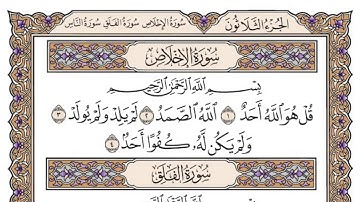 الجزء الثلاثون سورة الإخلاص سورة الفلق سورة الناس
سُورَةُ الإِخْلَاصِ
بِسْمِ اللَّهِ الرَّحْمَٰنِ الرَّحِيمِ
قُلْ هُوَ اللَّهُ أَحَدٌ ١ اللَّهُ الصَّمَدُ ٢ لَمْ يَلِدْ وَلَمْ يُولَدْ ٣
وَلَمْ يَكُن لَّهُ كُفُوًا أَحَدٌ ٤
سُورَةُ الفَلَقِ